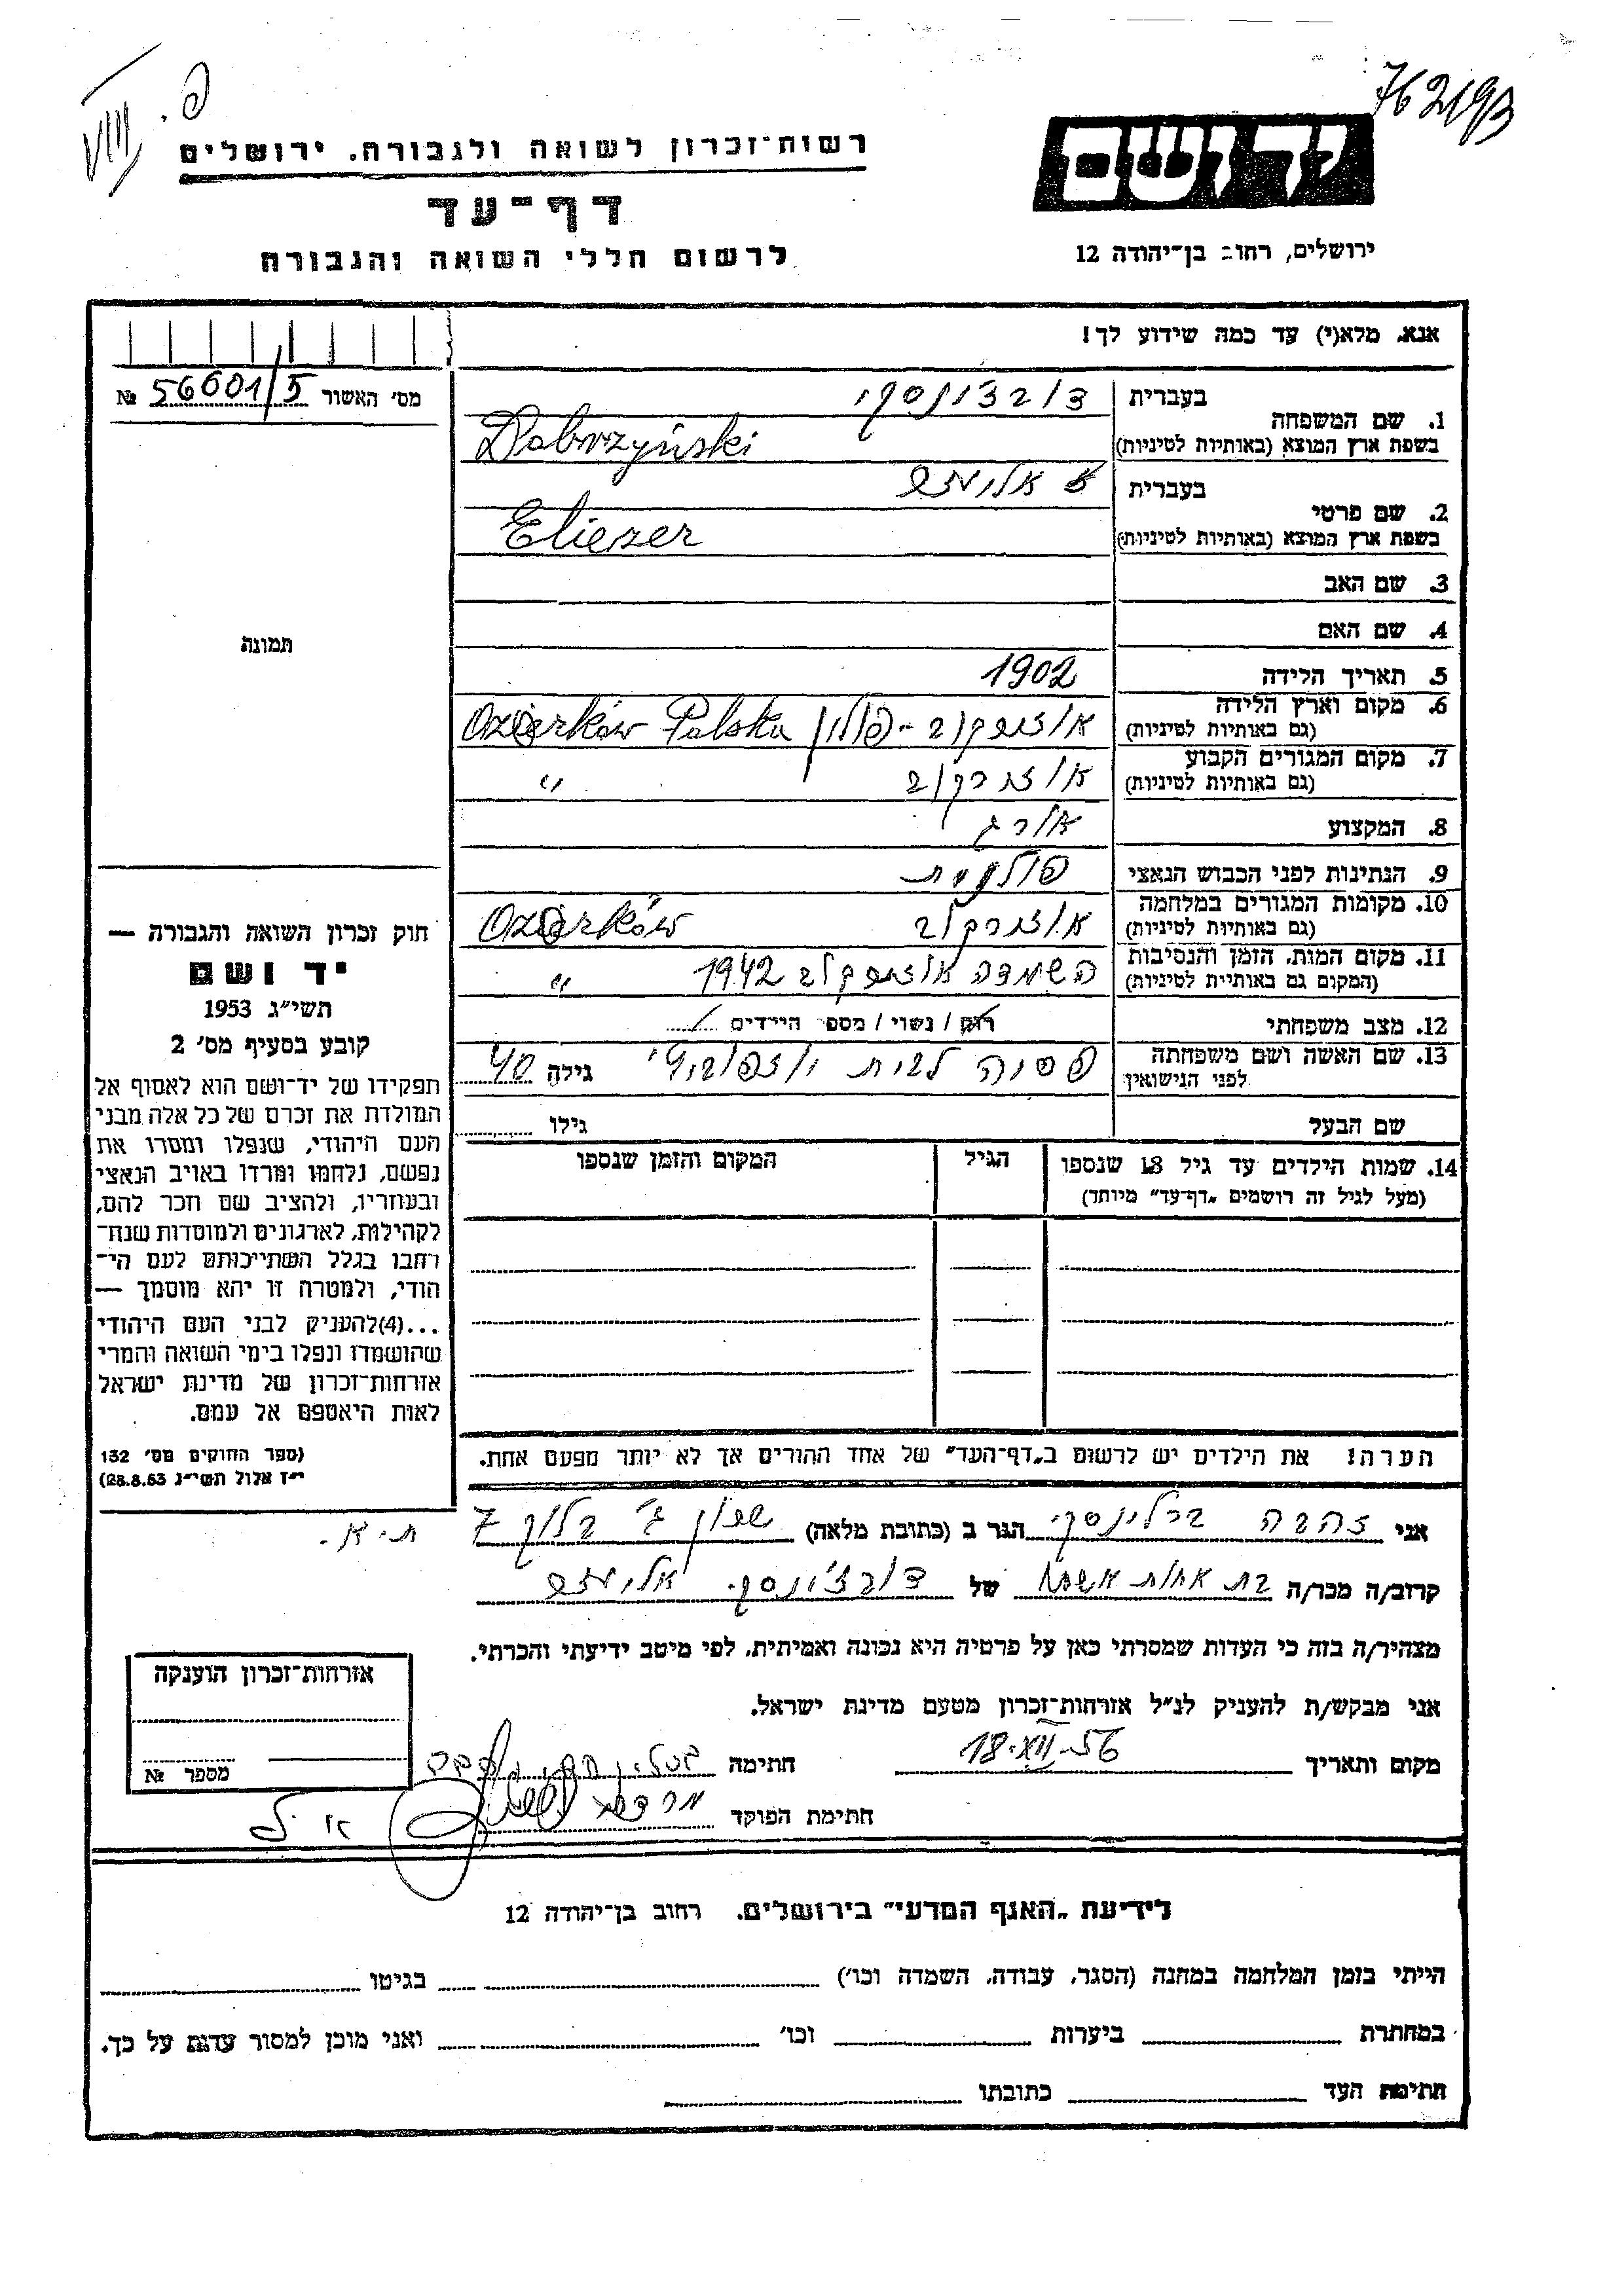 762193
VIII
פ.
יד ושם
רשות־זכרון לשואה ולגבורה, ירושלים
דף־עד
לרשום חללי השואה והגבורה
ירושלים, רחוב בן־יהודה 12
אנא, מלא(י) עד כמה שידוע לך!
מס׳ האשור 56601/5 №
1. שם המשפחה בעברית דוברצ׳ונסקי
בשפת ארץ המוצא (באותיות לטיניות) Dobrzyński
2. שם פרטי בעברית אליעזר
בשפת ארץ המוצא (באותיות לטיניות) Eliezer
3. שם האב
4. שם האם
תמונה
5. תאריך הלידה 1902
6. מקום וארץ הלידה אוזורקוב - פולין Ozorków Polska
(גם באותיות לטיניות)
7. מקום המגורים הקבוע אוזורקוב "
(גם באותיות לטיניות)
8. המקצוע אורג
9. הנתינות לפני הכבוש הנאצי פולנית
10. מקומות המגורים במלחמה אוזורקוב Ozorków
(גם באותיות לטיניות)
11. מקום המות, הזמן והנסיבות השמדה אוזורקוב 1942 "
(המקום גם באותיות לטיניות)
12. מצב משפחתי רוק / נשוי / מספר הילדים
13. שם האשה ושם משפחתה לבית גילה 40
לפני הנישואין
שם הבעל גילו
14. שמות הילדים עד גיל 18 שנספו הגיל המקום והזמן שנספו
(מעל לגיל זה רושמים „דף־עד" מיוחד)
חוק זכרון השואה והגבורה —
יד ושם
תשי״ג 1953
קובע בסעיף מס׳ 2
תפקידו של יד־ושם הוא לאסוף אל
המולדת את זכרם של כל אלה מבני
העם היהודי, שנפלו ומסרו את
נפשם, נלחמו ומרדו באויב הנאצי
ובעוזריו, ולהציב שם וזכר להם,
לקהילות, לארגונים ולמוסדות שנח־
רבו בגלל השתייכותם לעם הי־
הודי, ולמטרה זו יהא מוסמך —
...(4)להעניק לבני העם היהודי
שהושמדו ונפלו בימי השואה והמרי
אזרחות־זכרון של מדינת ישראל
לאות היאספם אל עמם.
(ספר החוקים מס׳ 132
י״ז אלול תשי״ג 28.8.53)
הערה! את הילדים יש לרשום ב„דף־העד" של אחד ההורים אך לא יותר מפעם אחת.
אני זהבה ברלינסקי הגר ב (כתובת מלאה) שכון ג׳ בלוק 7 ת.א.
קרוב/ה מכר/ה בת אחות אשתו של דוברצ׳ונסקי אליעזר
מצהיר/ה בזה כי העדות שמסרתי כאן על פרטיה היא נכונה ואמיתית, לפי מיטב ידיעתי והכרתי.
אני מבקש/ת להעניק לנ״ל אזרחות־זכרון מטעם מדינת ישראל.
מקום ותאריך 18.XII.56 חתימה
חתימת הפוקד
אזרחות־זכרון הוענקה
מספר №
לידיעת „האגף המדעי" בירושלים, רחוב בן־יהודה 12
הייתי בזמן המלחמה במחנה (הסגר, עבודה, השמדה וכו׳) בגיטו
במחתרת ביערות וכו׳ ואני מוכן למסור עדות על כך.
חתימת העד כתובתו